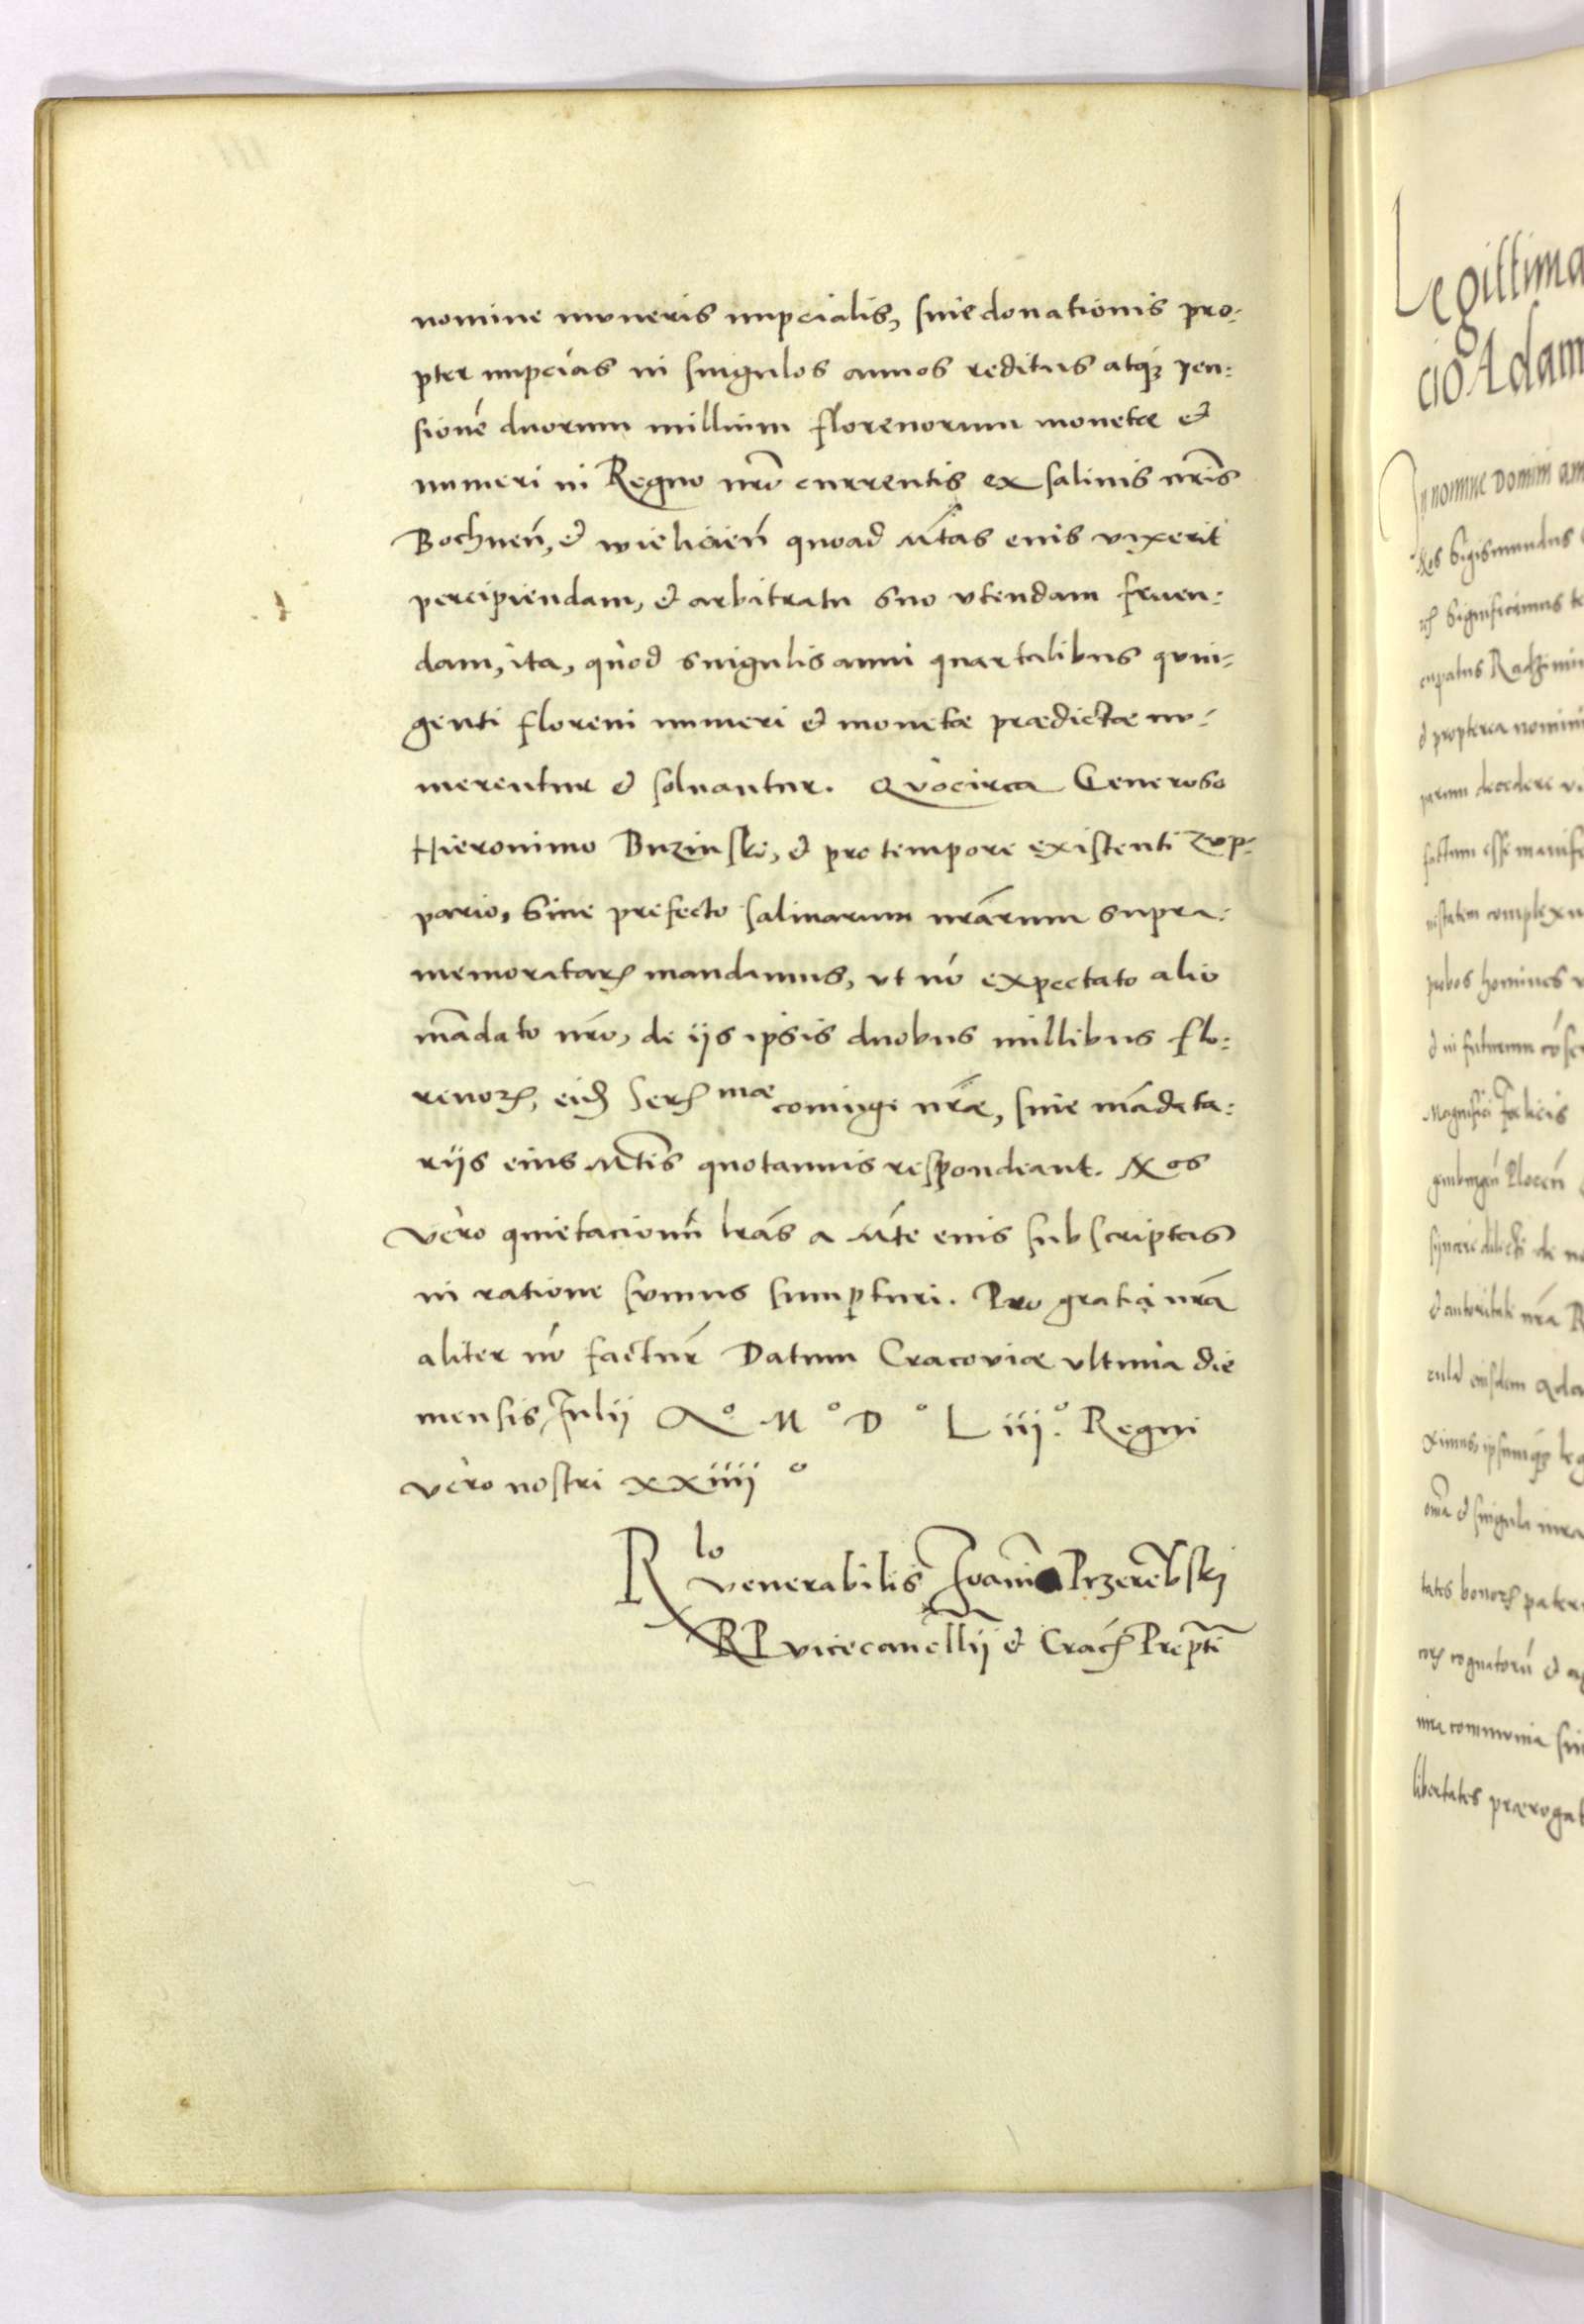 nomine muneris nupcialis, siue donationis pro:
pter nupcias in singulos annos reditus atq; pen:
sionē duorum millium florenorum monetæ et
numeri in Regno nrō currentis ex salinis nrīs
Bochneń, et wielicień quoad Mtas eius vixerit
percipiendam, et arbitratu suo vtendam fruen:
dam, ita, quod singulis anni quartalibus quin:
genti floreni numeri et monetæ prædictæ nu:
merentur et soluantur. Quocirca Generoso
Hieronimo Buzinski, et pro tempore existenti zup:
pario, siue prefecto salinarum nrārum supra:
memoratarꝝ mandamus, vt nō expectato alio
mādato nrō, de ijs ipsis duobus millibus flo:
renorꝝ, eid Ser mæ coniugi nrǣ, siue mādata:
rijs eius Mtis quotannis respondeant. Nos
vero quietacionū lrās a Mte eius subscriptas
in ratione sumus sumpturi. Pro gratia nrā
aliter nō factur Datum Cracoviæ vltima die
mensis Julij Aº Mº Dº Liijº. Regni
vero nostri xxiiijº
R lo venerabilis Joanīs Przerēbskj
RP vicecancellij et Crac Prepti
Legittima
cio Adam
In nomine Domini am
Nos Sigismundus
Significamus
cupatus Radzimin
et propterea nomini
parum decedere
factum esse manife
complexu
probos homines
et in futurum
Magnifici Felicis
Plocen
et autoritate nrā R
eiusdem
et singula iura
cognatorū et
communia
libertates prærogat